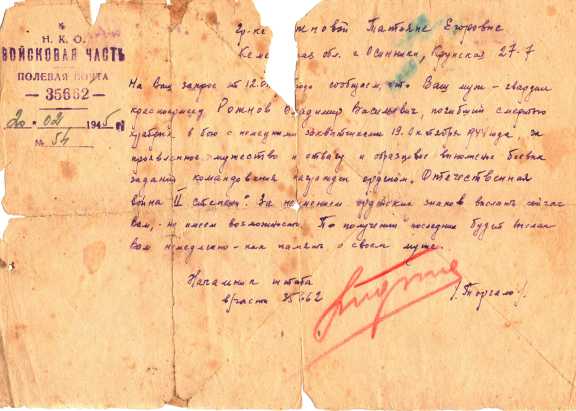 Н. К. О.
ВОЙСКОВАЯ ЧАСТЬ
ПОЛЕВАЯ ПОЧТА
— 35662 —
20 02 1945
№ 54
гр-ке новой Татьяне Егоровне
Кеме кая обл. г Осинники, 27-7
На Ваш запрос от 12.0 года сообщаем, что Ваш муж - гвардии
красноармеец Рожнов Владимир Васильевич, погибший смертью
храбрых в бою с немецкими захватчиками 19 октября 1944 года, за
проявленное мужество и отвагу и образцовое выполнение боевых
заданий командования награжден орденом "Отечественная
война II степени". За неимением орденских знаков выслать сейчас
Вам, - не имеем возможность. По получении последних будет выслан
Вам немедленно - как память о своем муже.
Начальник штаба
в/части 35662
/. Торгало /.